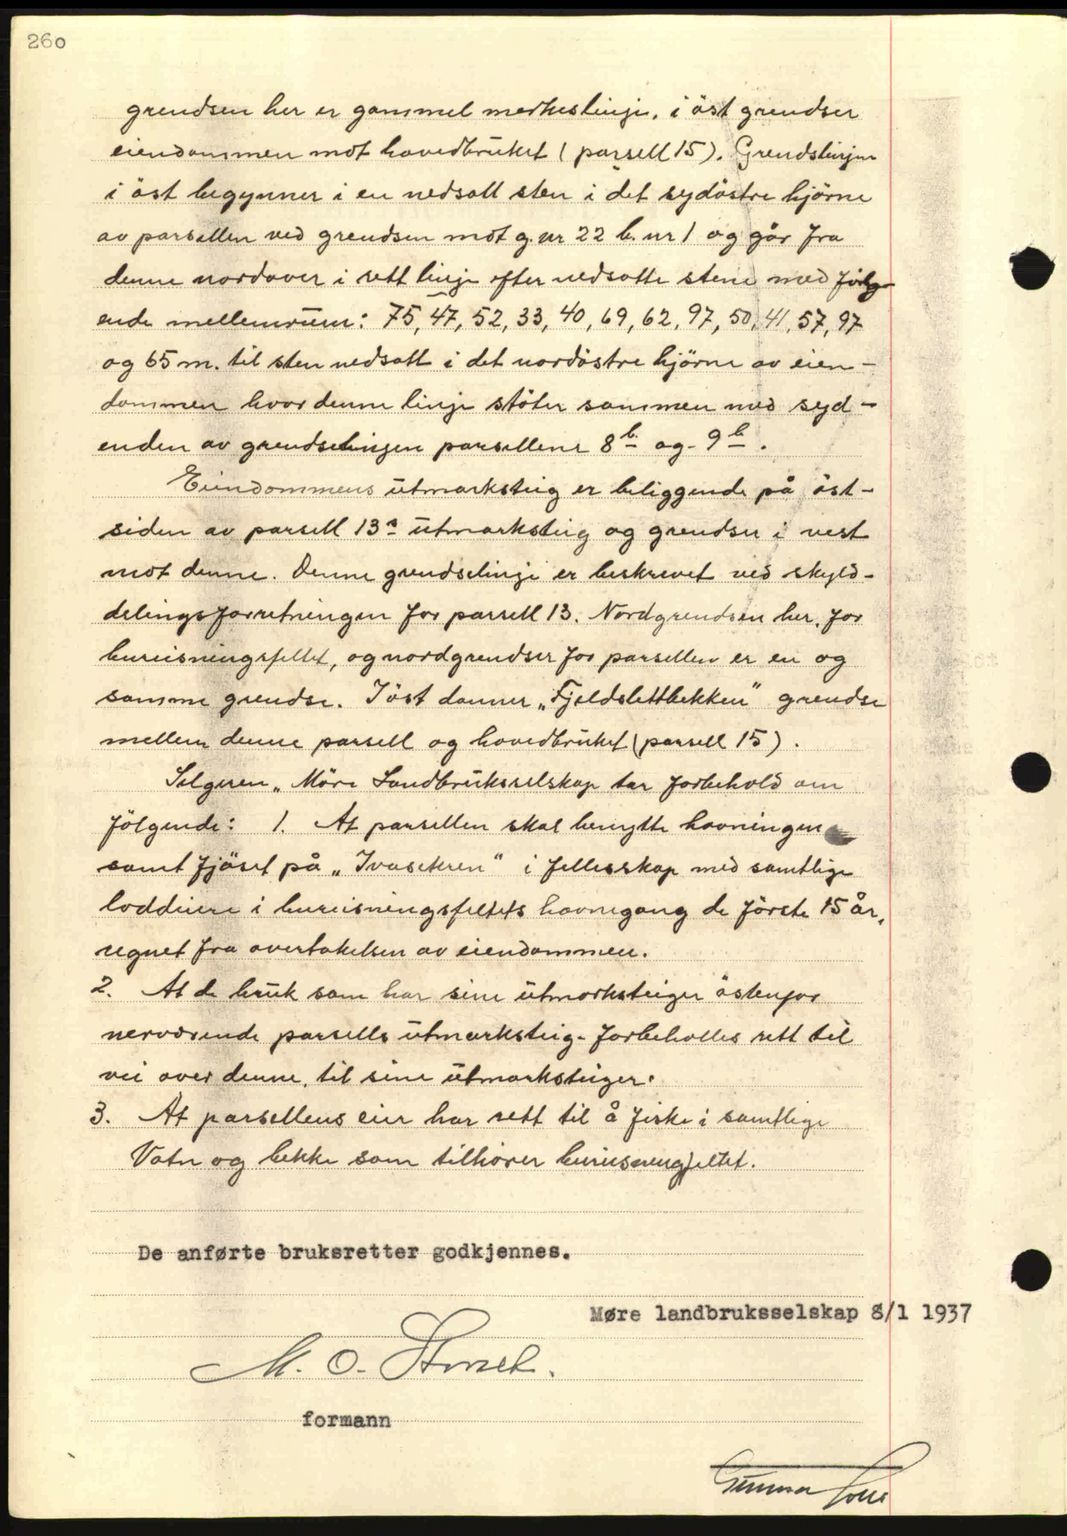 260
grendsen her er gammel merkeslinje. i öst grendser
eiendommen mot hovedbruket (parsell 15). Grendslinjen
i öst begynner i en nedsatt sten i det sydöstre hjörne
av parsellen ved grendsen mot g. nr 22 b. nr 1 og går fra
denne nordover i rett linje efter nedsatte stene med fölg-
ende mellemrum: 75, 47, 52, 33, 40, 69, 62, 97, 50, 41, 57, 97
og 65 m. til sten nedsatt i det nordöstre hjörne av eien-
dommen hvor denne linje stöter sammen med syd-
enden av grendselinjen parsellene 8 b og 9 b.
Eiendommens utmarksteig er beliggende på öst-
siden av parsell 13a utmarksteig og grendser i vest
mot denne. Denne grendselinje er beskrevet ved skyld-
delingsforretningen for parsell 13. Nordgrendsen her, for
bureisningsfeltet, og nordgrendser for parsellen er en og
samme grendse. I öst danner „Fjeldslettbekken" grendse
mellem denne parsell og hovedbruket (parsell 15).
Selgeren „Möre Landbruksselskap tar forbehold om
fölgende: 1. At parsellen skal benytte havningen
samt fjöset på „Ivasetren" i fellesskap med samtlige
loddeiere i bureisningsfeltets havnegang de förste 15 år,
regnet fra overtakelsen av eiendommen.
2. At de bruk som har sine utmarksteiger östenfor
nerværende parsells utmarksteig forbeholdes rett til
vei over denne, til sine utmarksteiger.
3. At parsellens eier har rett til å fiske i samtlige
Vatn og bekke som tilhörer bureisningsfeltet.
De anførte bruksretter godkjennes.
Møre landbruksselskap 8/1 1937
M. O.
formann
Gunnar